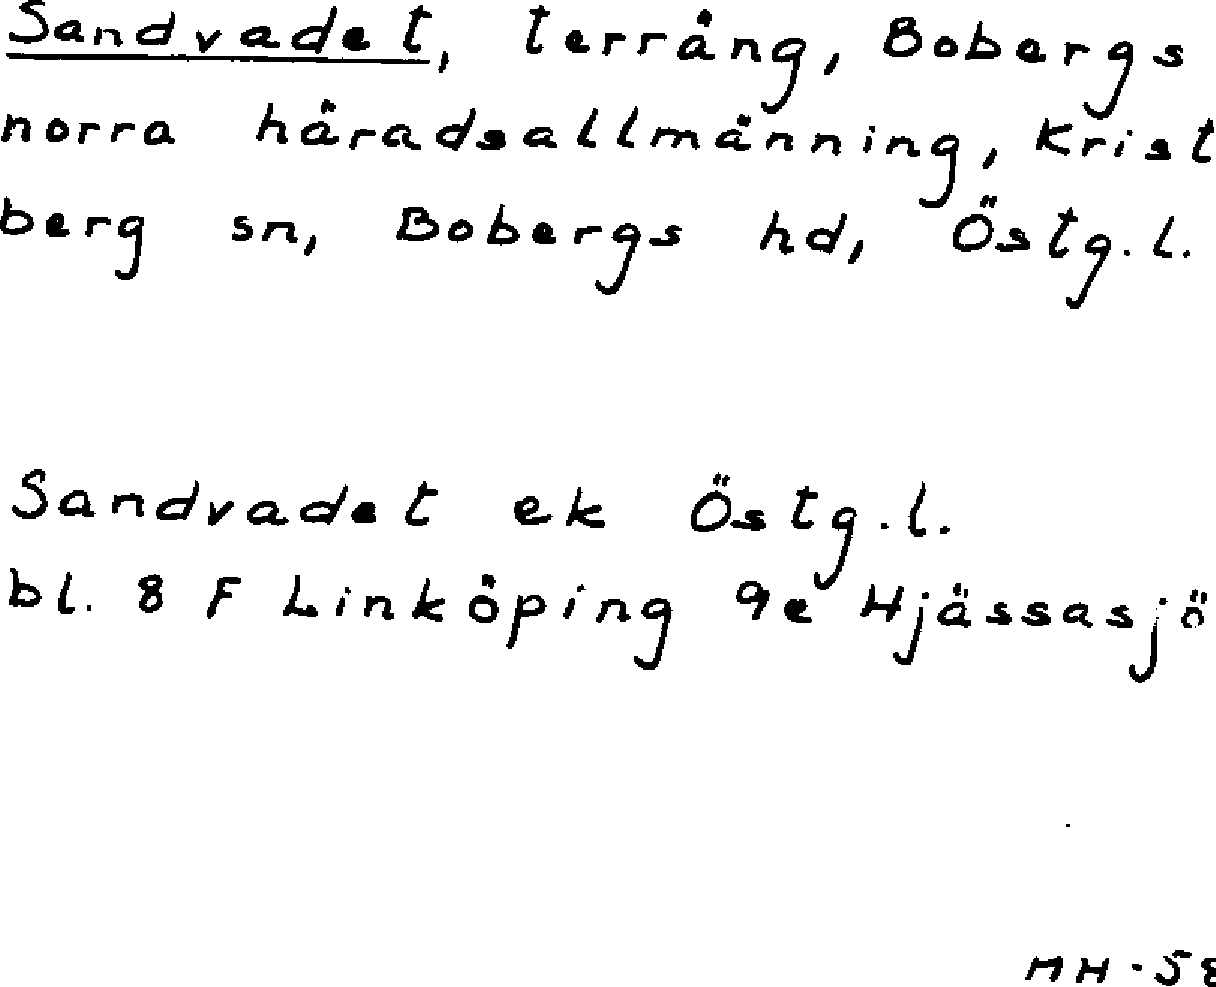 Sandvadet, terräng, Bobergs
norra häradsallmänning, Krist
berg sn, Bobergs hd, Östg.l.
Sandvadet ek Östg.l.
bl. 8 F Linköping 9e Hjässasjö
MH-58